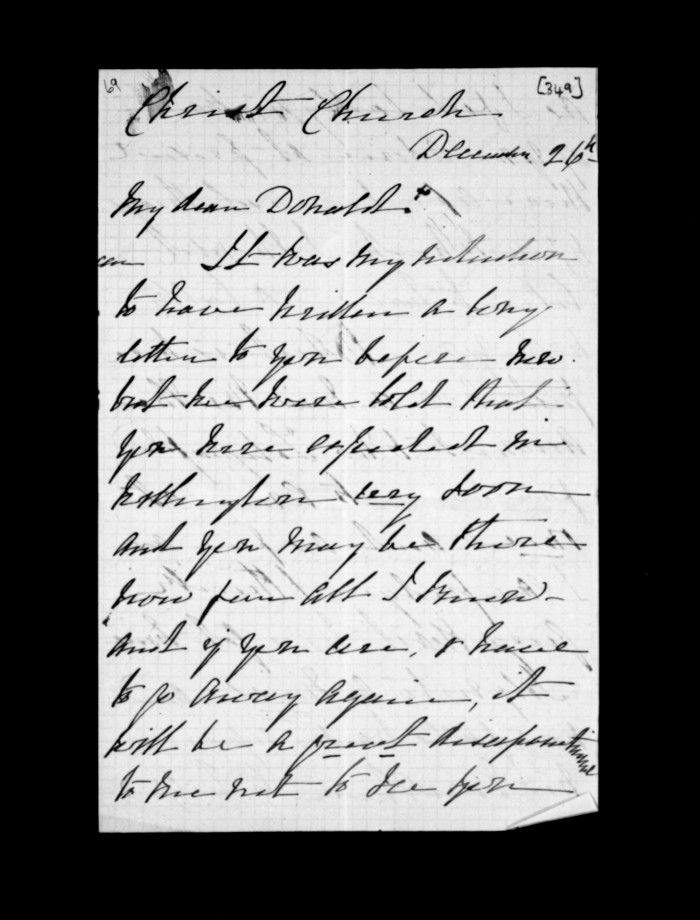 69
[349]
Christ Church
December 26th
My dear Donald. x
It was my intention
to have written a long
letter to you before now.
but we were told that
you were expected in
Wellington very soon
and you may be there
now for all I know -
and if you are, & have
to go away again, it
will be a great disappointment
to me not to see you